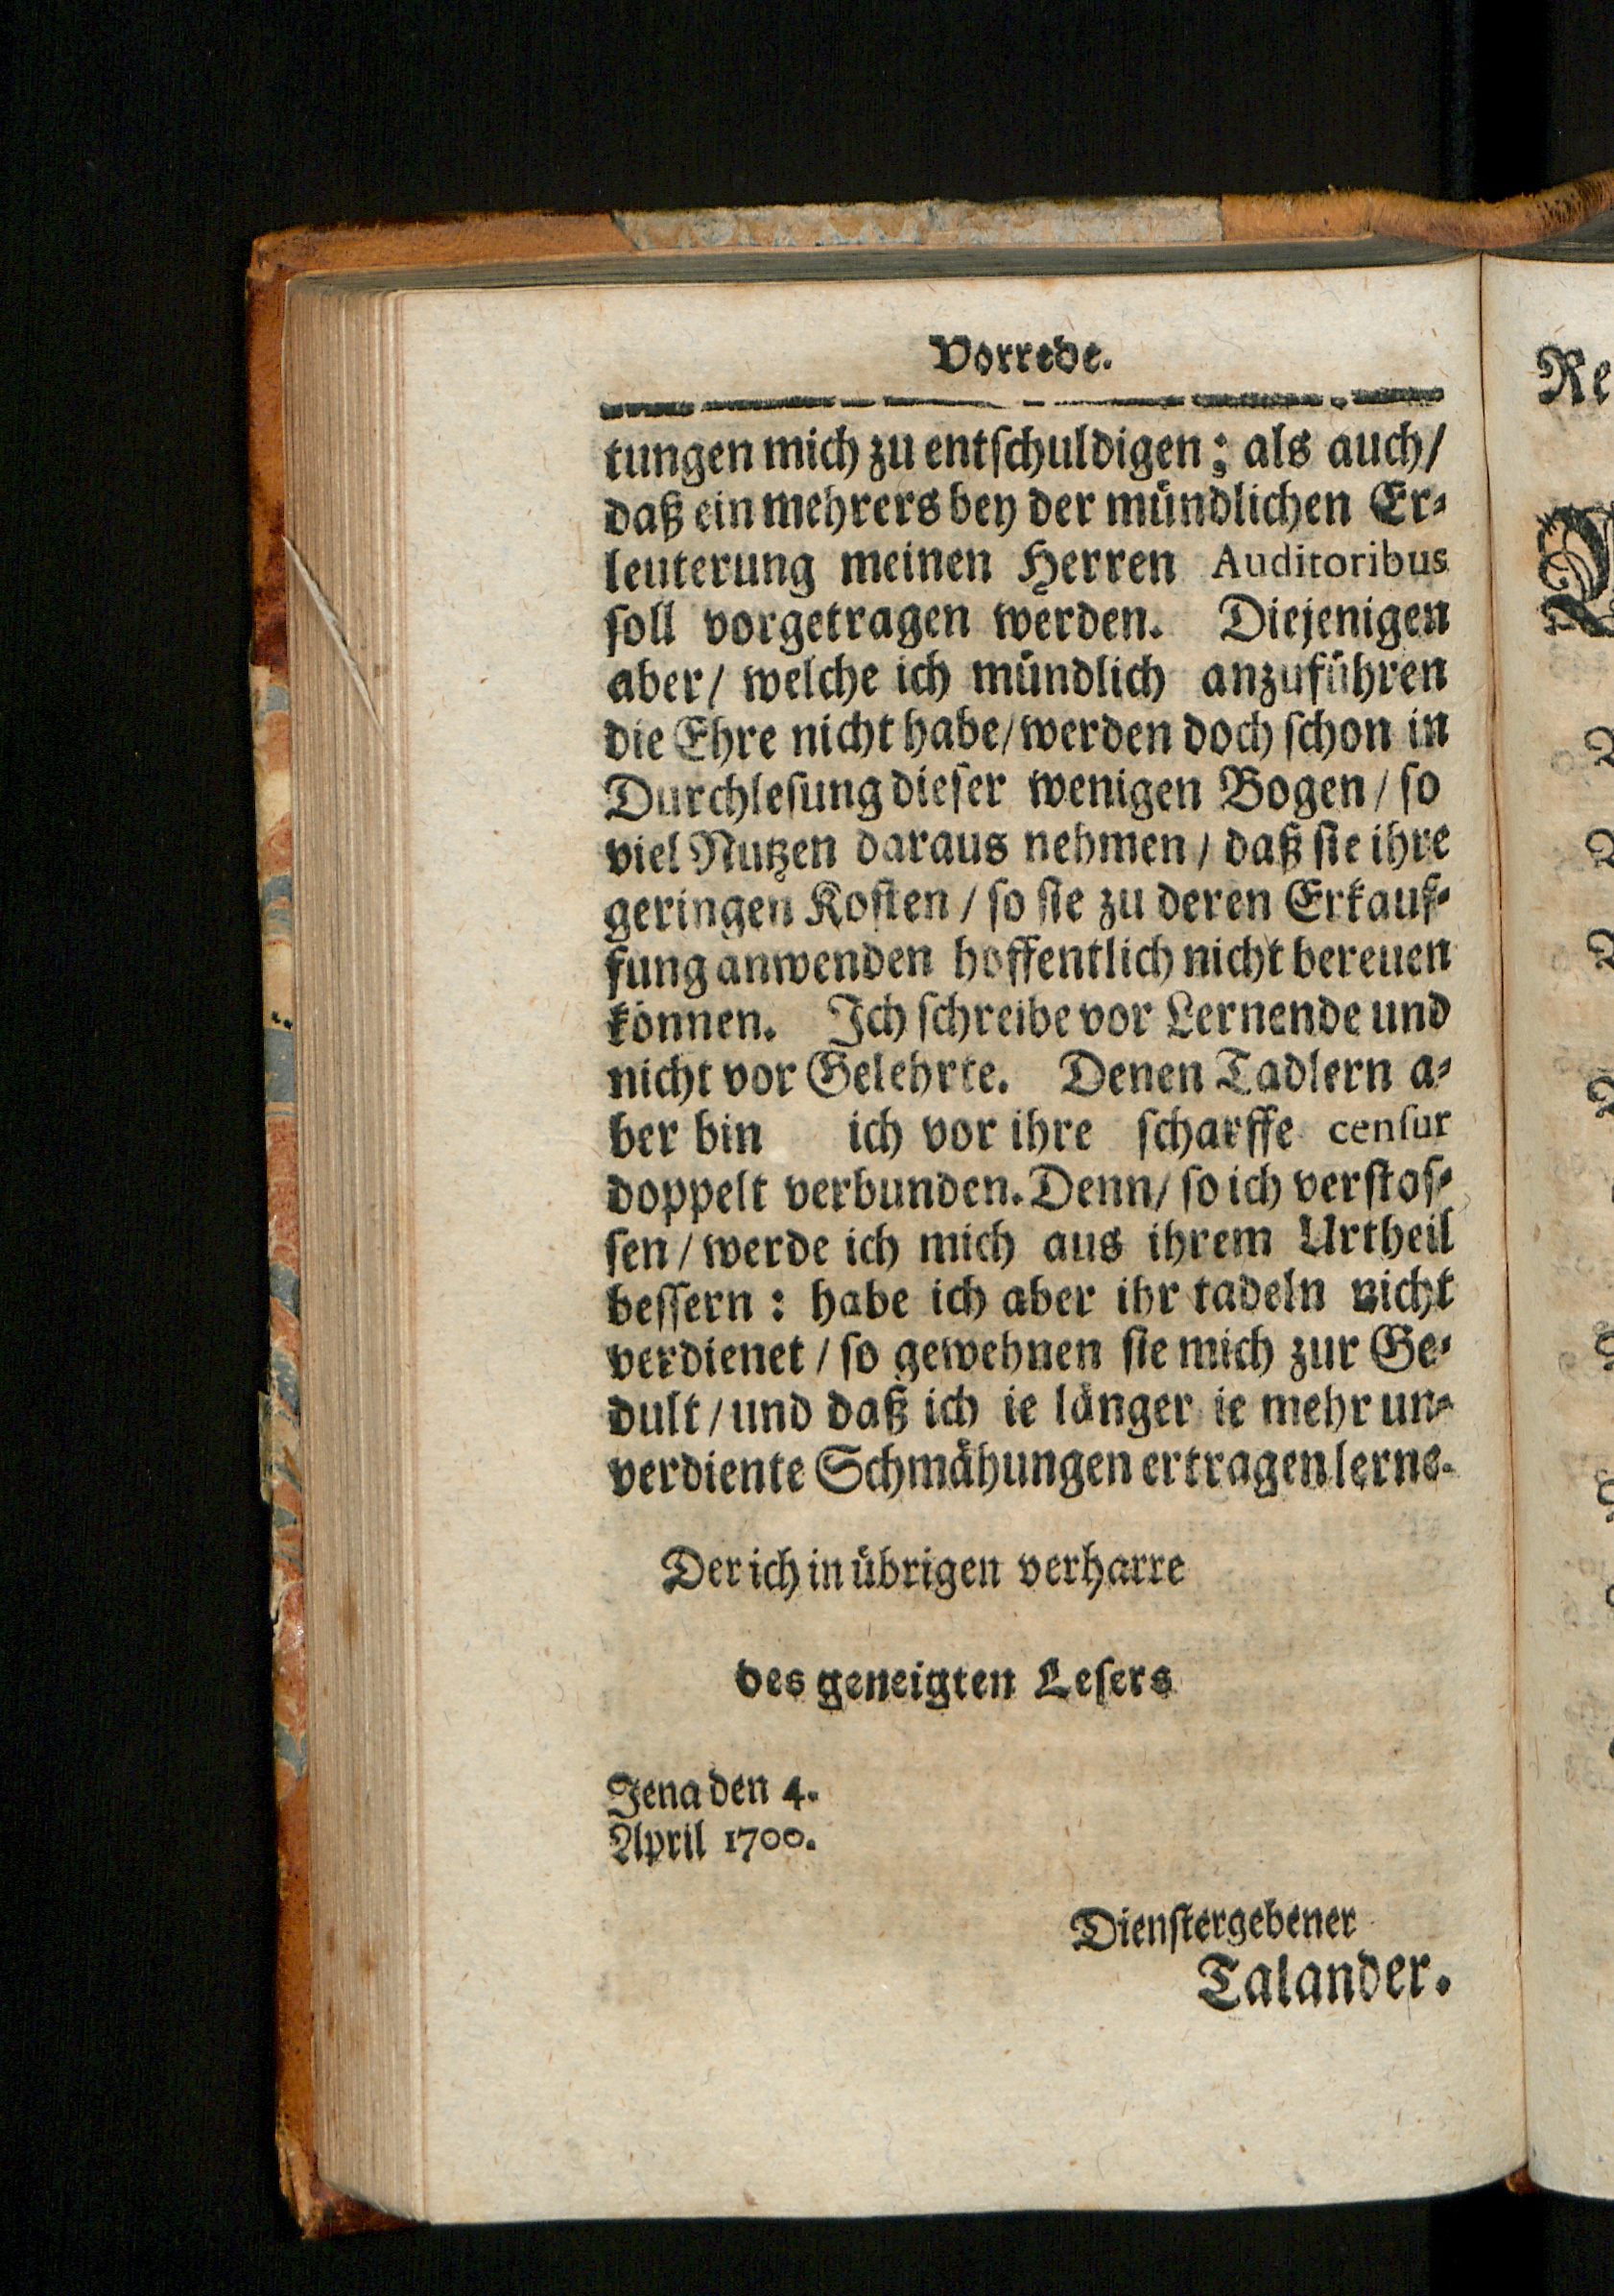 Vorrede.
tungen mich zu entſchuldigen; als auch/
daß ein mehrers bey der mündlichen Er-
leuterung meinen Herren Auditoribus
ſoll vorgetragen werden. Diejenigen
aber/ welche ich mündlich anzuführen
die Ehre nicht habe/ werden doch ſchon in
Durchleſung dieſer wenigen Bogen/ ſo
viel Nutzen daraus nehmen/ daß ſie ihre
geringen Koſten/ ſo ſie zu deren Erkauf-
fung anwenden hoffentlich nicht bereuen
können. Ich ſchreibe vor Lernende und
nicht vor Gelehrte. Denen Tadlern a-
ber bin ich vor ihre ſcharffe cenſur
doppelt verbunden. Denn/ ſo ich verſtoſ-
ſen/ werde ich mich aus ihrem Urtheil
beſſern: habe ich aber ihr tadeln nicht
verdienet/ ſo gewehnen ſie mich zur Ge-
dult/ und daß ich ie länger ie mehr un-
verdiente Schmähungen ertragen lerne.
Der ich in übrigen verharre
des geneigten Leſers
Jena den 4.
April 1700.
Dienſtergebener
Talander.
Re